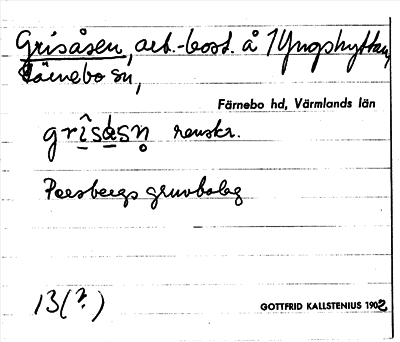 Grisåsen, arb.-bost. å Yngshyttan,
Färnebo sn,
Färnebo hd, Värmlands län
grîsåsn̥ renskr.
Persbergs gruvbolag
13(?)
GOTTFRID KALLSTENIUS 1902